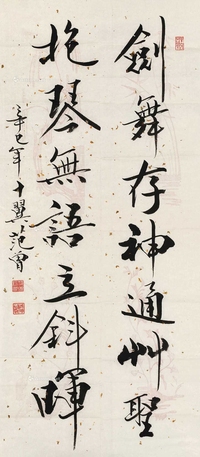 劍舞存神通艸聖
抱琴無語立斜暉
辛巳年十翼范曾